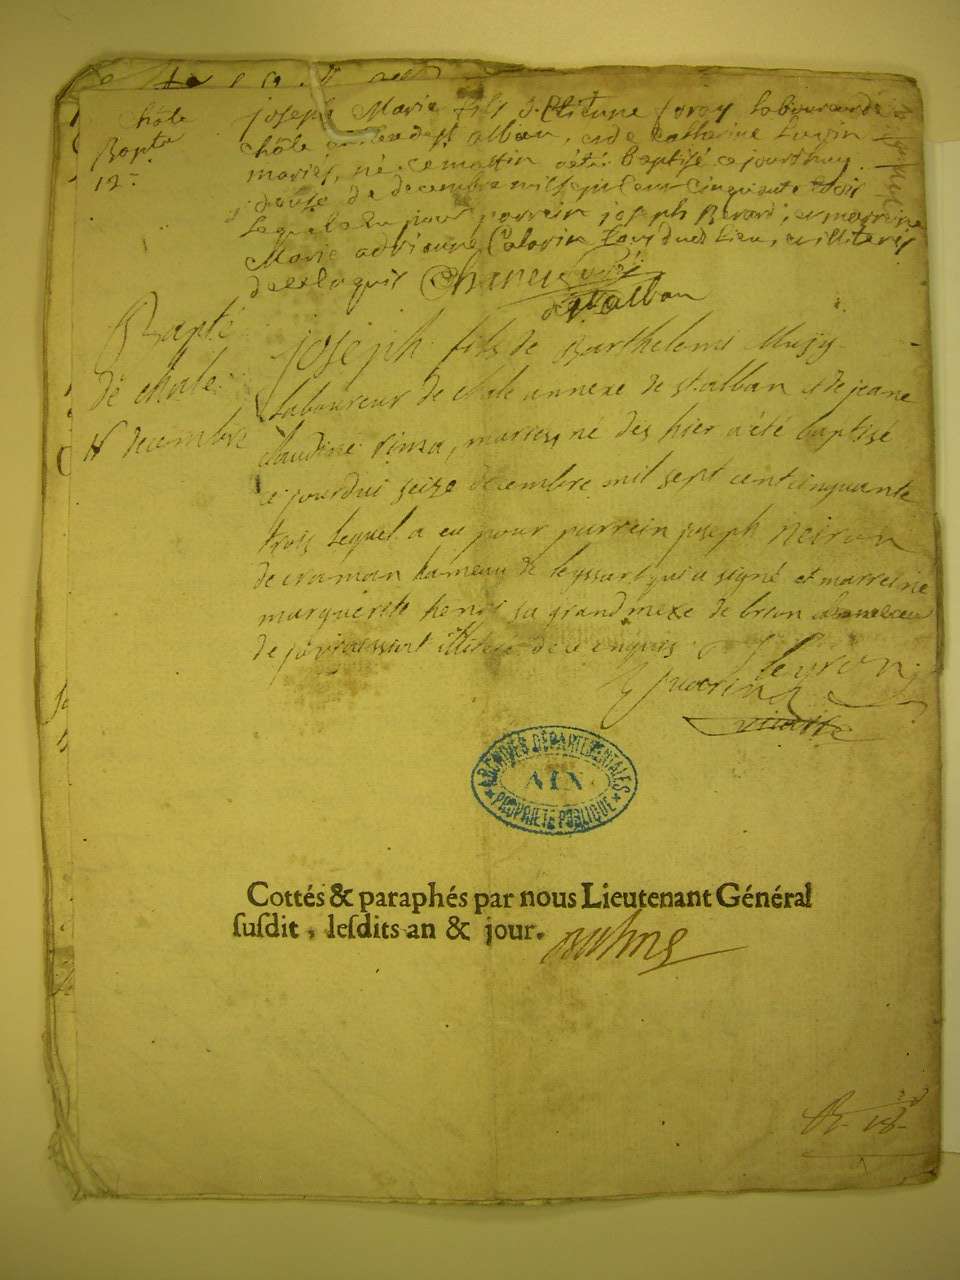 chôle
Bapte
12e
joseph Marie fils d'Etienne Laboureur de
chôle annexe de st alban, et de Catherine
mariés, né ce matin a été Baptisé ce jourdhuy
douse de decembre mil sept cent cinquante trois
Lequel a Eu pour parrein joseph Berard, et marreine
Marie adrianne tous dud Lieu, illiteréz
de ce Enquis
de st alban
Bapté
de chole
16 decembre
joseph fils de Barthelemi
Laboureur de chole annexe de st alban et de jeane
claudine, mariés, né des hier a été baptisé
ce jourdui seize decembre mil sept cent cinquante
trois Lequel a eu pour parrein joseph neiron
de craman hameau de leyssard qui a signé et marreine
marguerite henri sa grand mere de brion
de illiteré de ce enquis
Neyron
Guerin
vicaire
ARCHIVES DÉPARTEMENTALES
AIN
PROPRIÉTÉ PUBLIQUE
Cottés & paraphés par nous Lieutenant Général
suſdit, leſdits an & jour.